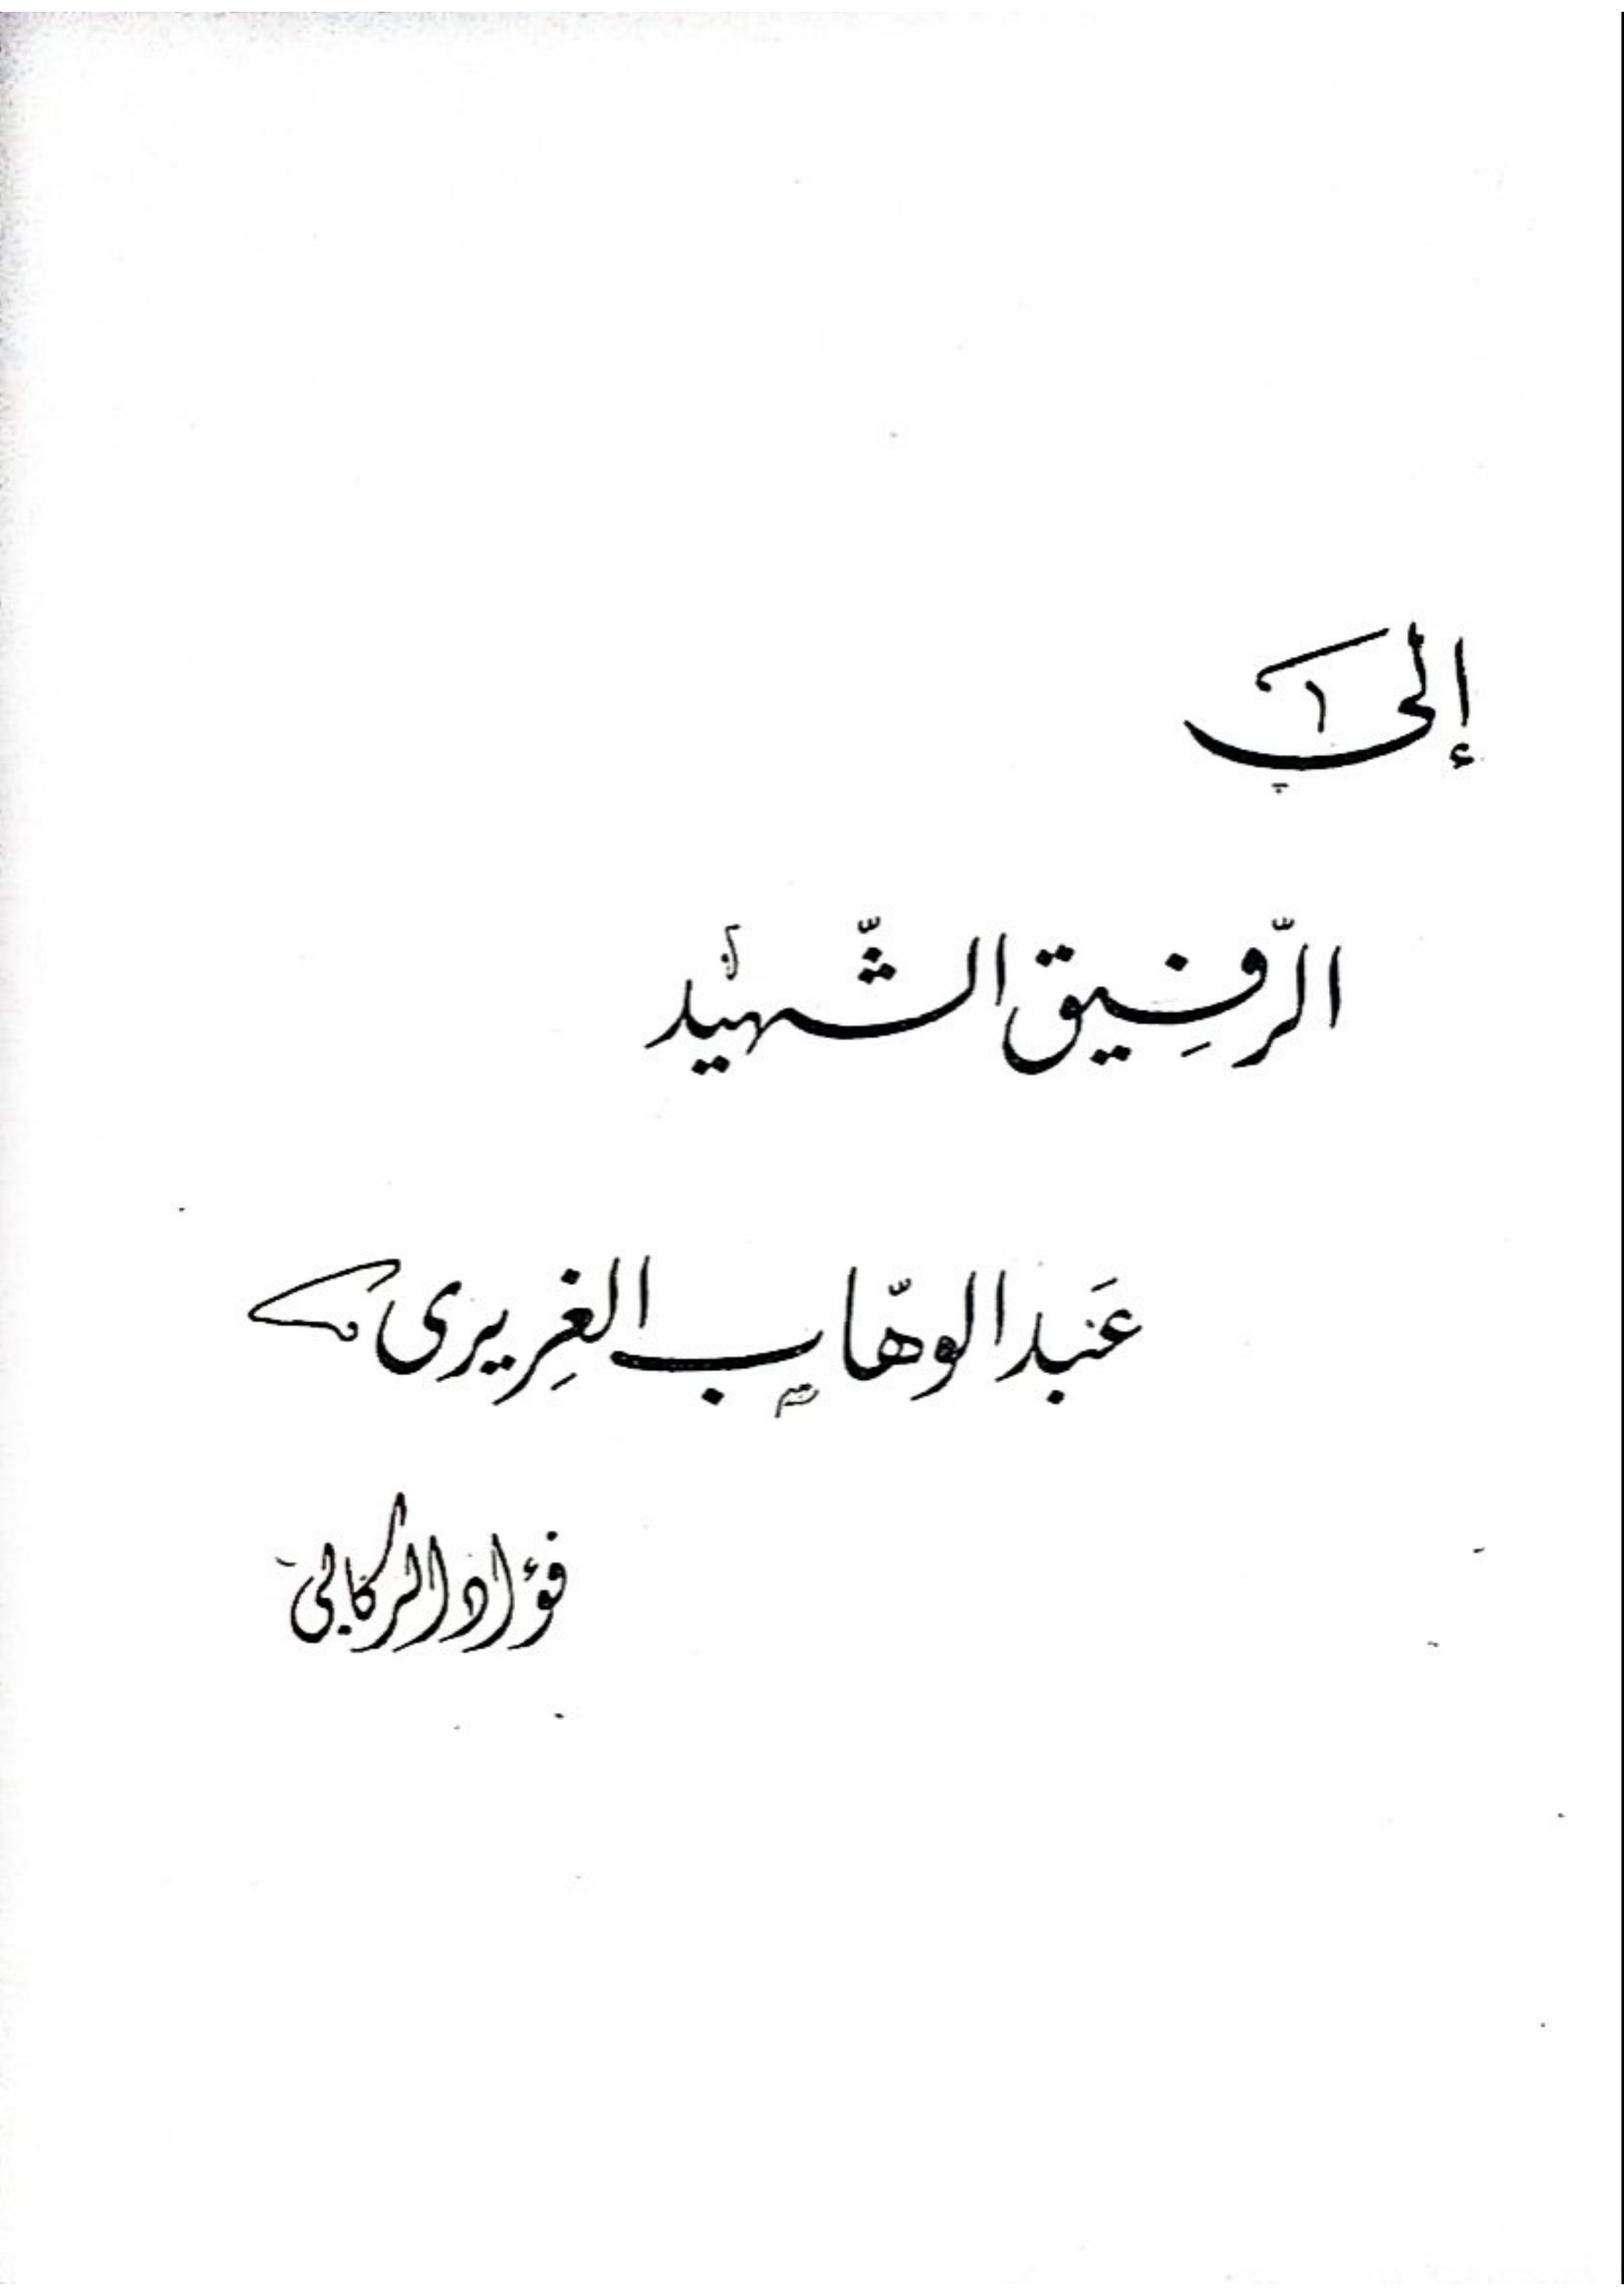 إلى
الرّفِيق الشّهيد
عَبد الوهّاب الغِريرى
فؤاد الركابي